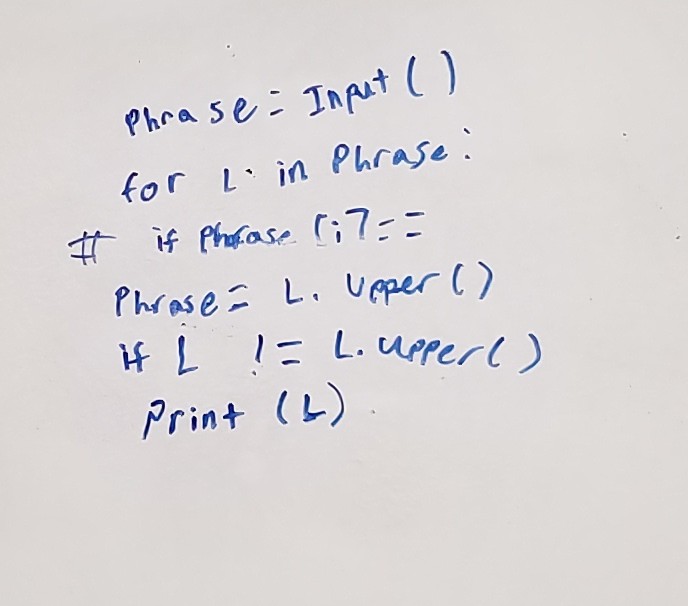 Phrase = Input ( )
for L in Phrase:
# if Phrase [i] ==
Phrase = L. Upper ()
if L != L. upper ( )
Print (L)